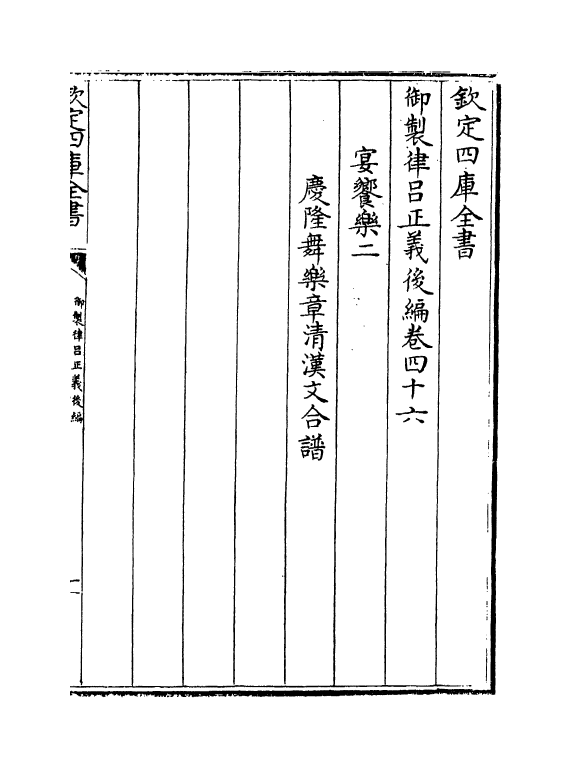 欽定四庫全書
御製律呂正義後編卷四十六
宴饗樂二
慶隆舞樂章清漢文合譜
欽定四庫全書
御製律呂正義後編
一